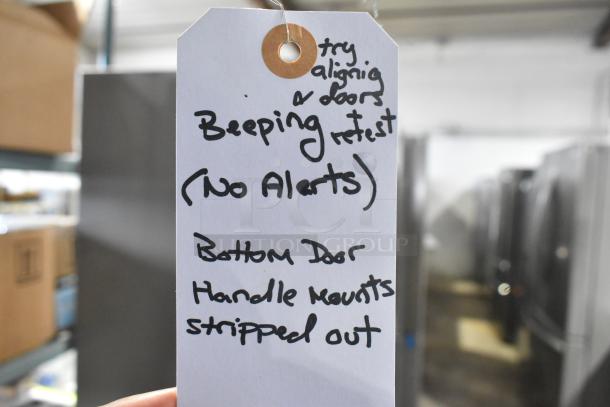 try
alignig
doors
+ retest
Beeping
(No Alerts)
Bottom Door
Handle Mounts
stripped out
PCI
AUCTION GROUP